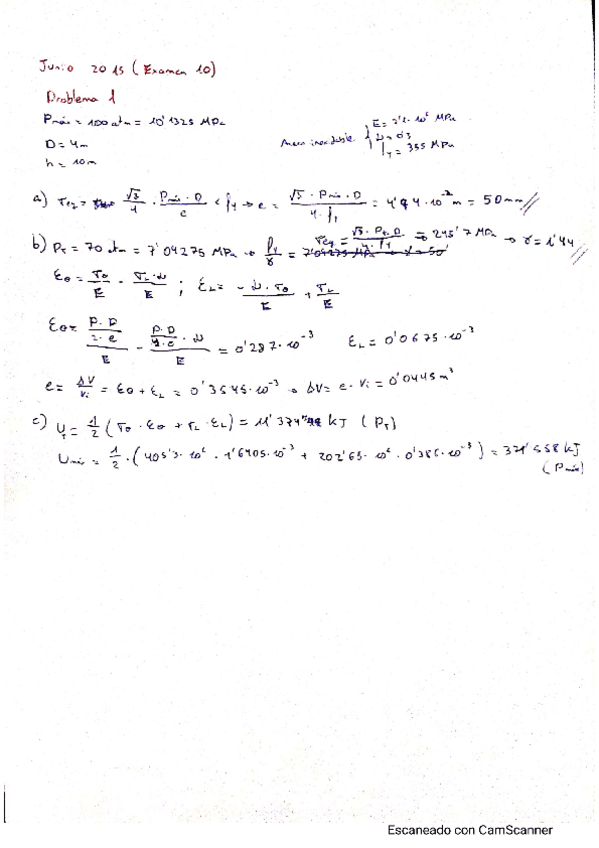 Junio 2015 (Examen 10)
Problema 1
Pmáx = 100 atm = 10'1325 MPa
D = 4m
h = 10m
Acero inoxidable { E = 2'1·10⁵ MPa
ν = 0'3
fy = 355 MPa
a) σeq = √3/4 · Pmáx·D/e < fy → e = √3·Pmáx·D/4·fy = 4'94·10⁻²m = 50mm
b) Ps = 70 atm = 7'04275 MPa → fy/γ = σeq = √3·Ps·D/4· = 245'7 MPa → γ = 1'44
εθ = σθ/E - σL·ν/E ; εL = -ν·σθ/E + σL/E
εθ = P·D/2·e/E - P·D/4·e·ν/E = 0'287·10⁻³ εL = 0'0675·10⁻³
e = ΔV/Vi = εθ + εL = 0'3545·10⁻³ → ΔV = e·Vi = 0'0445m³
c) Us = 1/2 (σθ·εθ + σL·εL) = 11'374 kJ (Ps)
Umáx = 1/2 · (405'3·10⁶ · 1'6405·10⁻³ + 202'65·10⁶ · 0'386·10⁻³) = 371'558 kJ
(Pmáx)
Escaneado con CamScanner